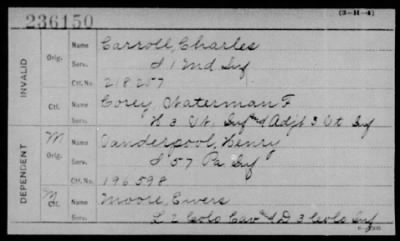 (3-H-4)
236150
INVALID
Orig.
Name Carroll, Charles
Serv. I 1 Md Inf
Ctf. No. 218257
Ctf.
Name Corey, Waterman F
Serv. H 3 Vt. Inf & Adjt 3 Vt Inf
DEPENDENT
M
Orig.
Name Vanderpool, Henry
Serv. I 57 Pa Inf
Ctf. No. 196598
M
Ctf.
Name Moore, Ewers
Serv. L 2 Colo Cav & D 3 Colo Inf